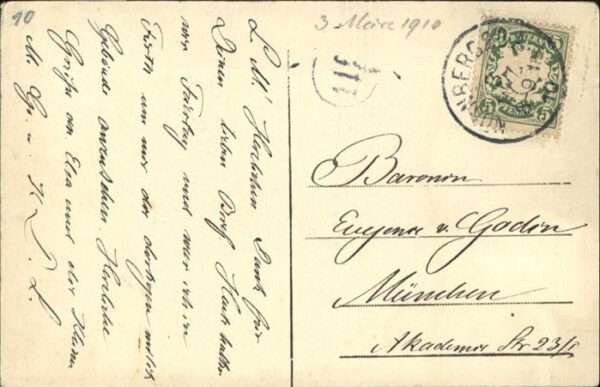 10
3 März 1910
NÜRNBERG
5 5
L. M! Herzlichen Dank für
Deinen lieben Brief. Heute hatten
wir Feiertag und war ich in
Fürth um mir der dortigen
Gebäude anzusehen. Herzliche
Grüße an Elsa und die Kleine
M. Gr. u. K. D. L.
Baronin
Eugenie v. Godin
München
Akademie Str 23/I